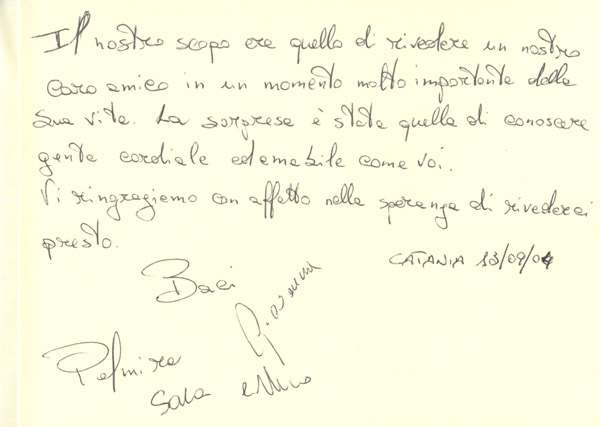 Il nostro scopo era quello di rivedere un nostro
caro amico in un momento molto importante della
sua vita. La sorpresa è stata quella di conoscere
gente cordiale ed amabile come voi.
Vi ringraziamo con affetto nella speranza di rivederci
presto.
CATANIA 13/09/04
Baci
Palmira
Sara e Nino